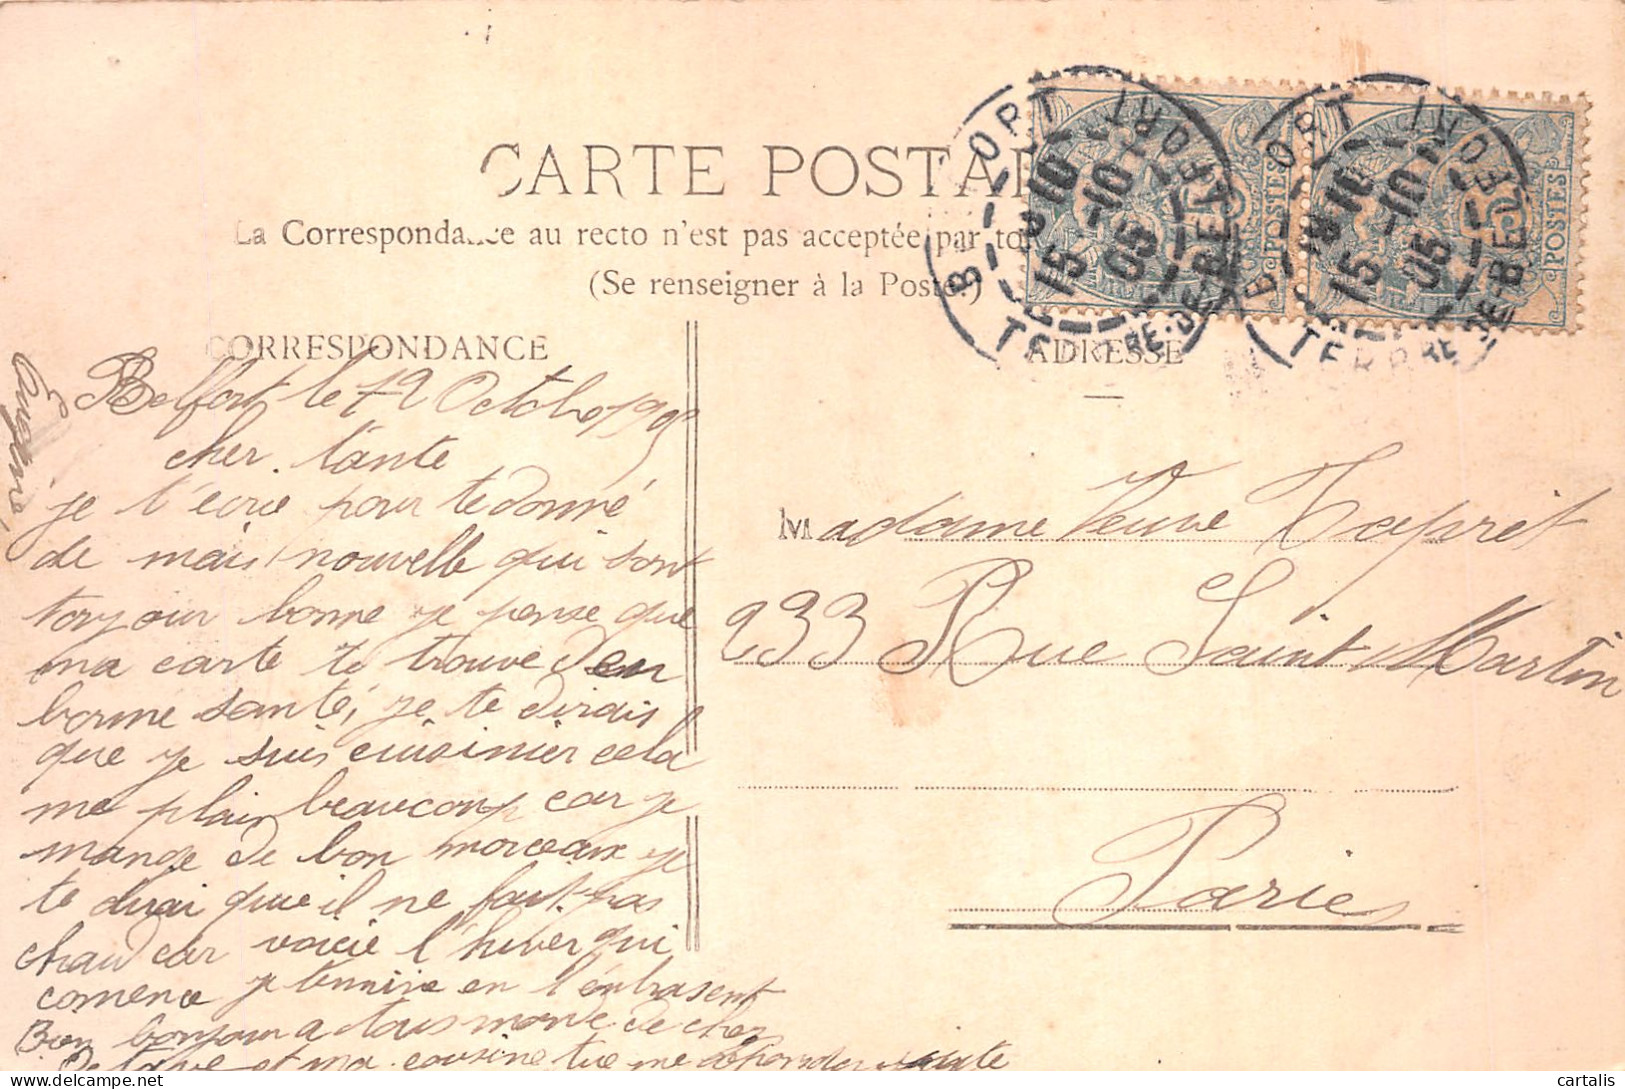 CARTE POSTALE
La Correspondance au recto n'est pas acceptée par tou
(Se renseigner à la Poste.)
CORRESPONDANCE
ADRESSE
BELFORT
15 -10
05
TERRE-DE-BELFORT
POSTES
BELFORT
15 -10
05
TERRE-DE-BELFORT
5
POSTES
Eugène
Belfort le 12 Octobre 1905
cher tante
je t'écrie pour te donné
de mais nouvelle qui sont
toujour bonne je pense que
ma carte te trouve den
bonne santé, je te dirais
que je suis cuisinier cela
me plain beaucoup car je
mange de bon morceaux je
te dirai que il ne fait pas
chaud car voicie l'hiver qui
comence je termine en l'enbrasent
Bien bonjour a tous monde de chez
et ma cousine tue me reponder suite
Madame Veuve Tapret
233 Rue Saint Martin
Paris
cartalis